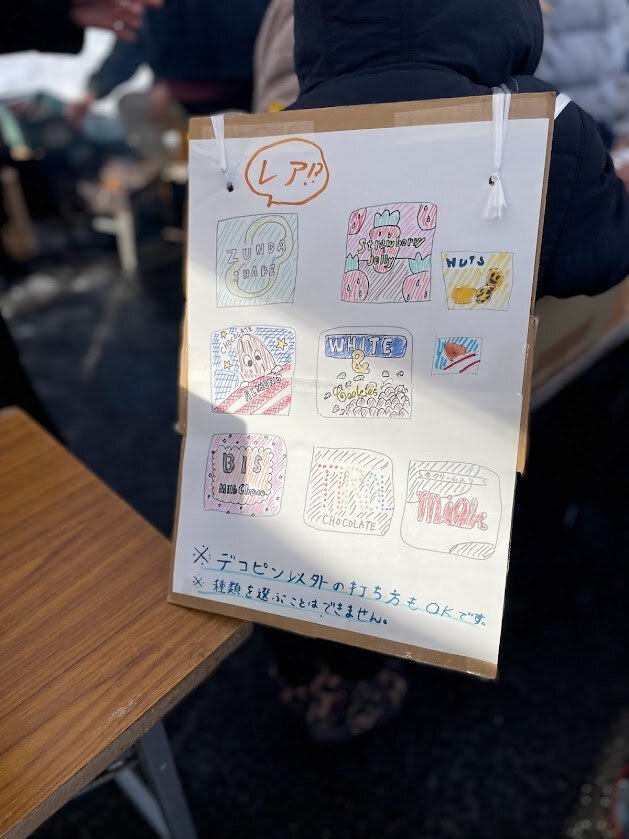 レア!?
ZUNDA
SHAKE
Strawberry
Jelly
NUTS
CHOCOLATE
ALMOND
WHITE
&
Cookies
BIS
Milk Choco
CHOCOLATE
Milk
※デコピン以外の打ち方もOKです。
※種類を選ぶことはできません。